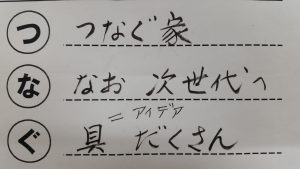 つ つなぐ家
な なお 次世代へ
ぐ 具 だくさん
=アイデア